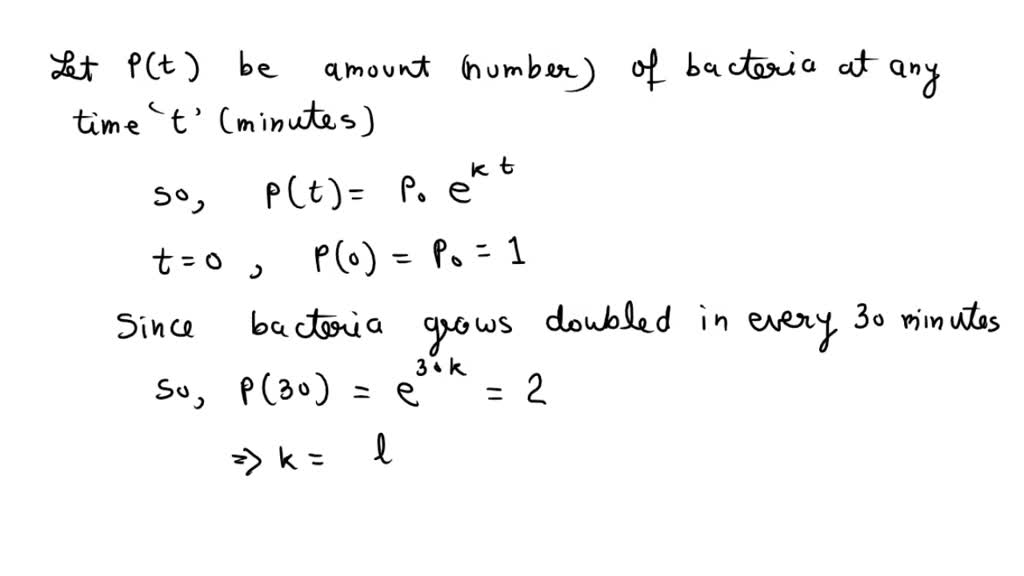 Let P(t) be amount (number) of bacteria at any
time 't' (minutes)
so, P(t) = P₀ e^{kt}
t = 0, P(0) = P₀ = 1
Since bacteria grows doubled in every 30 minutes
So, P(30) = e^{30k} = 2
⇒ k = l